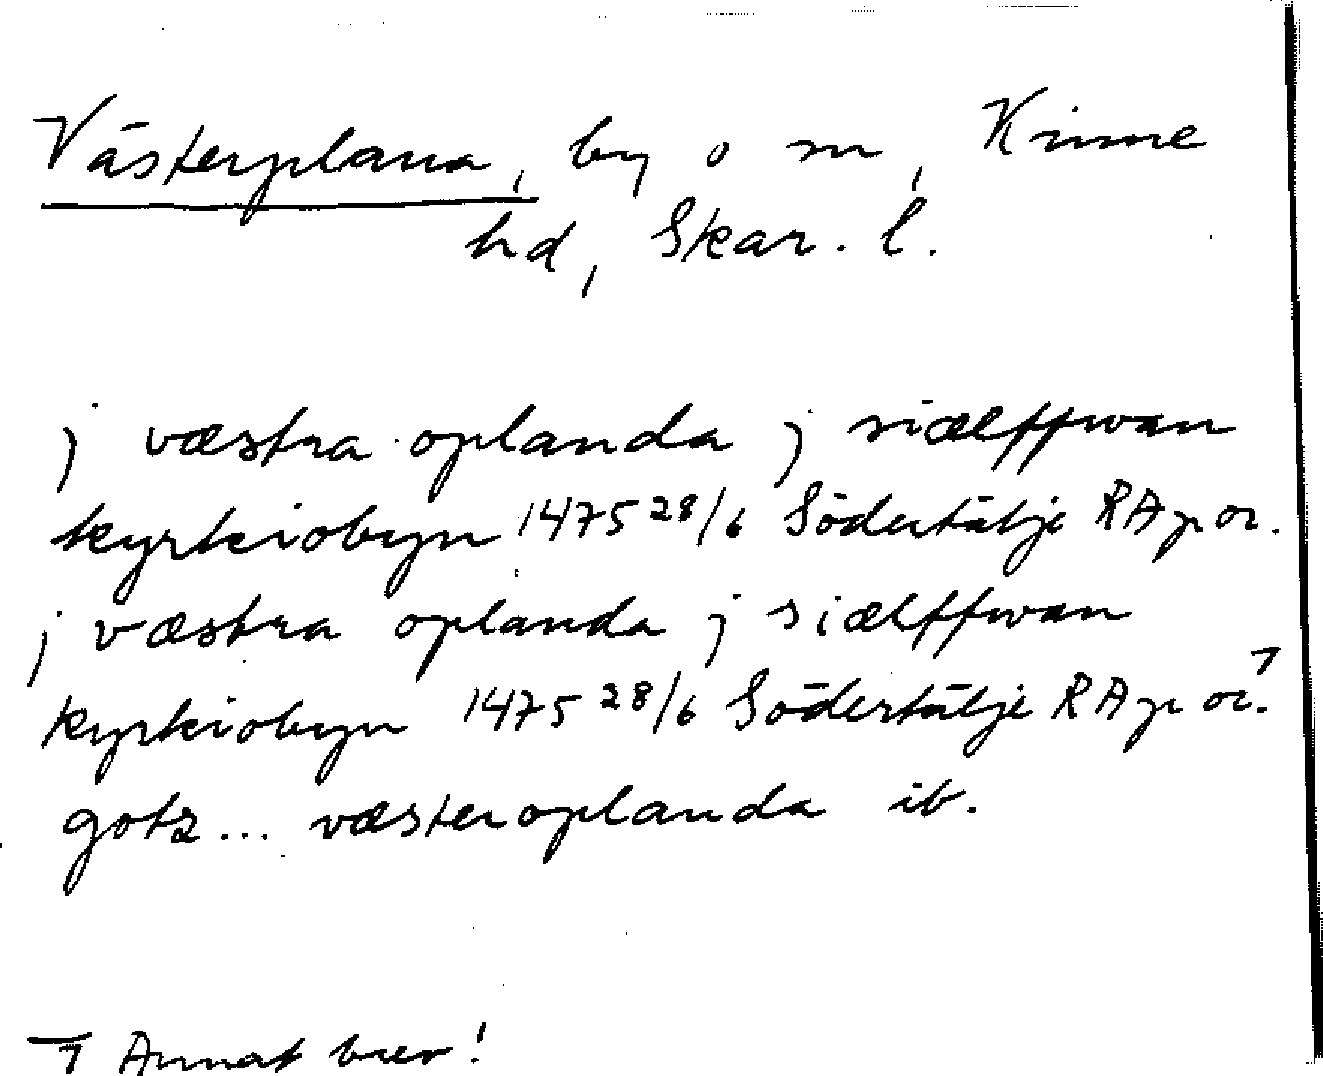 Västerplana, by o sn, Kinne
hd, Skar. l.
j væstra oplanda j siælffwan
kyrkiobyn 1475 28/6 Södertälje RA p or.
j væstra oplanda j siælffwan
kyrkiobyn 1475 28/6 Södertälje RA p or. ⁊
gotz... væsteroplanda ib.
⁊ Annat brev!